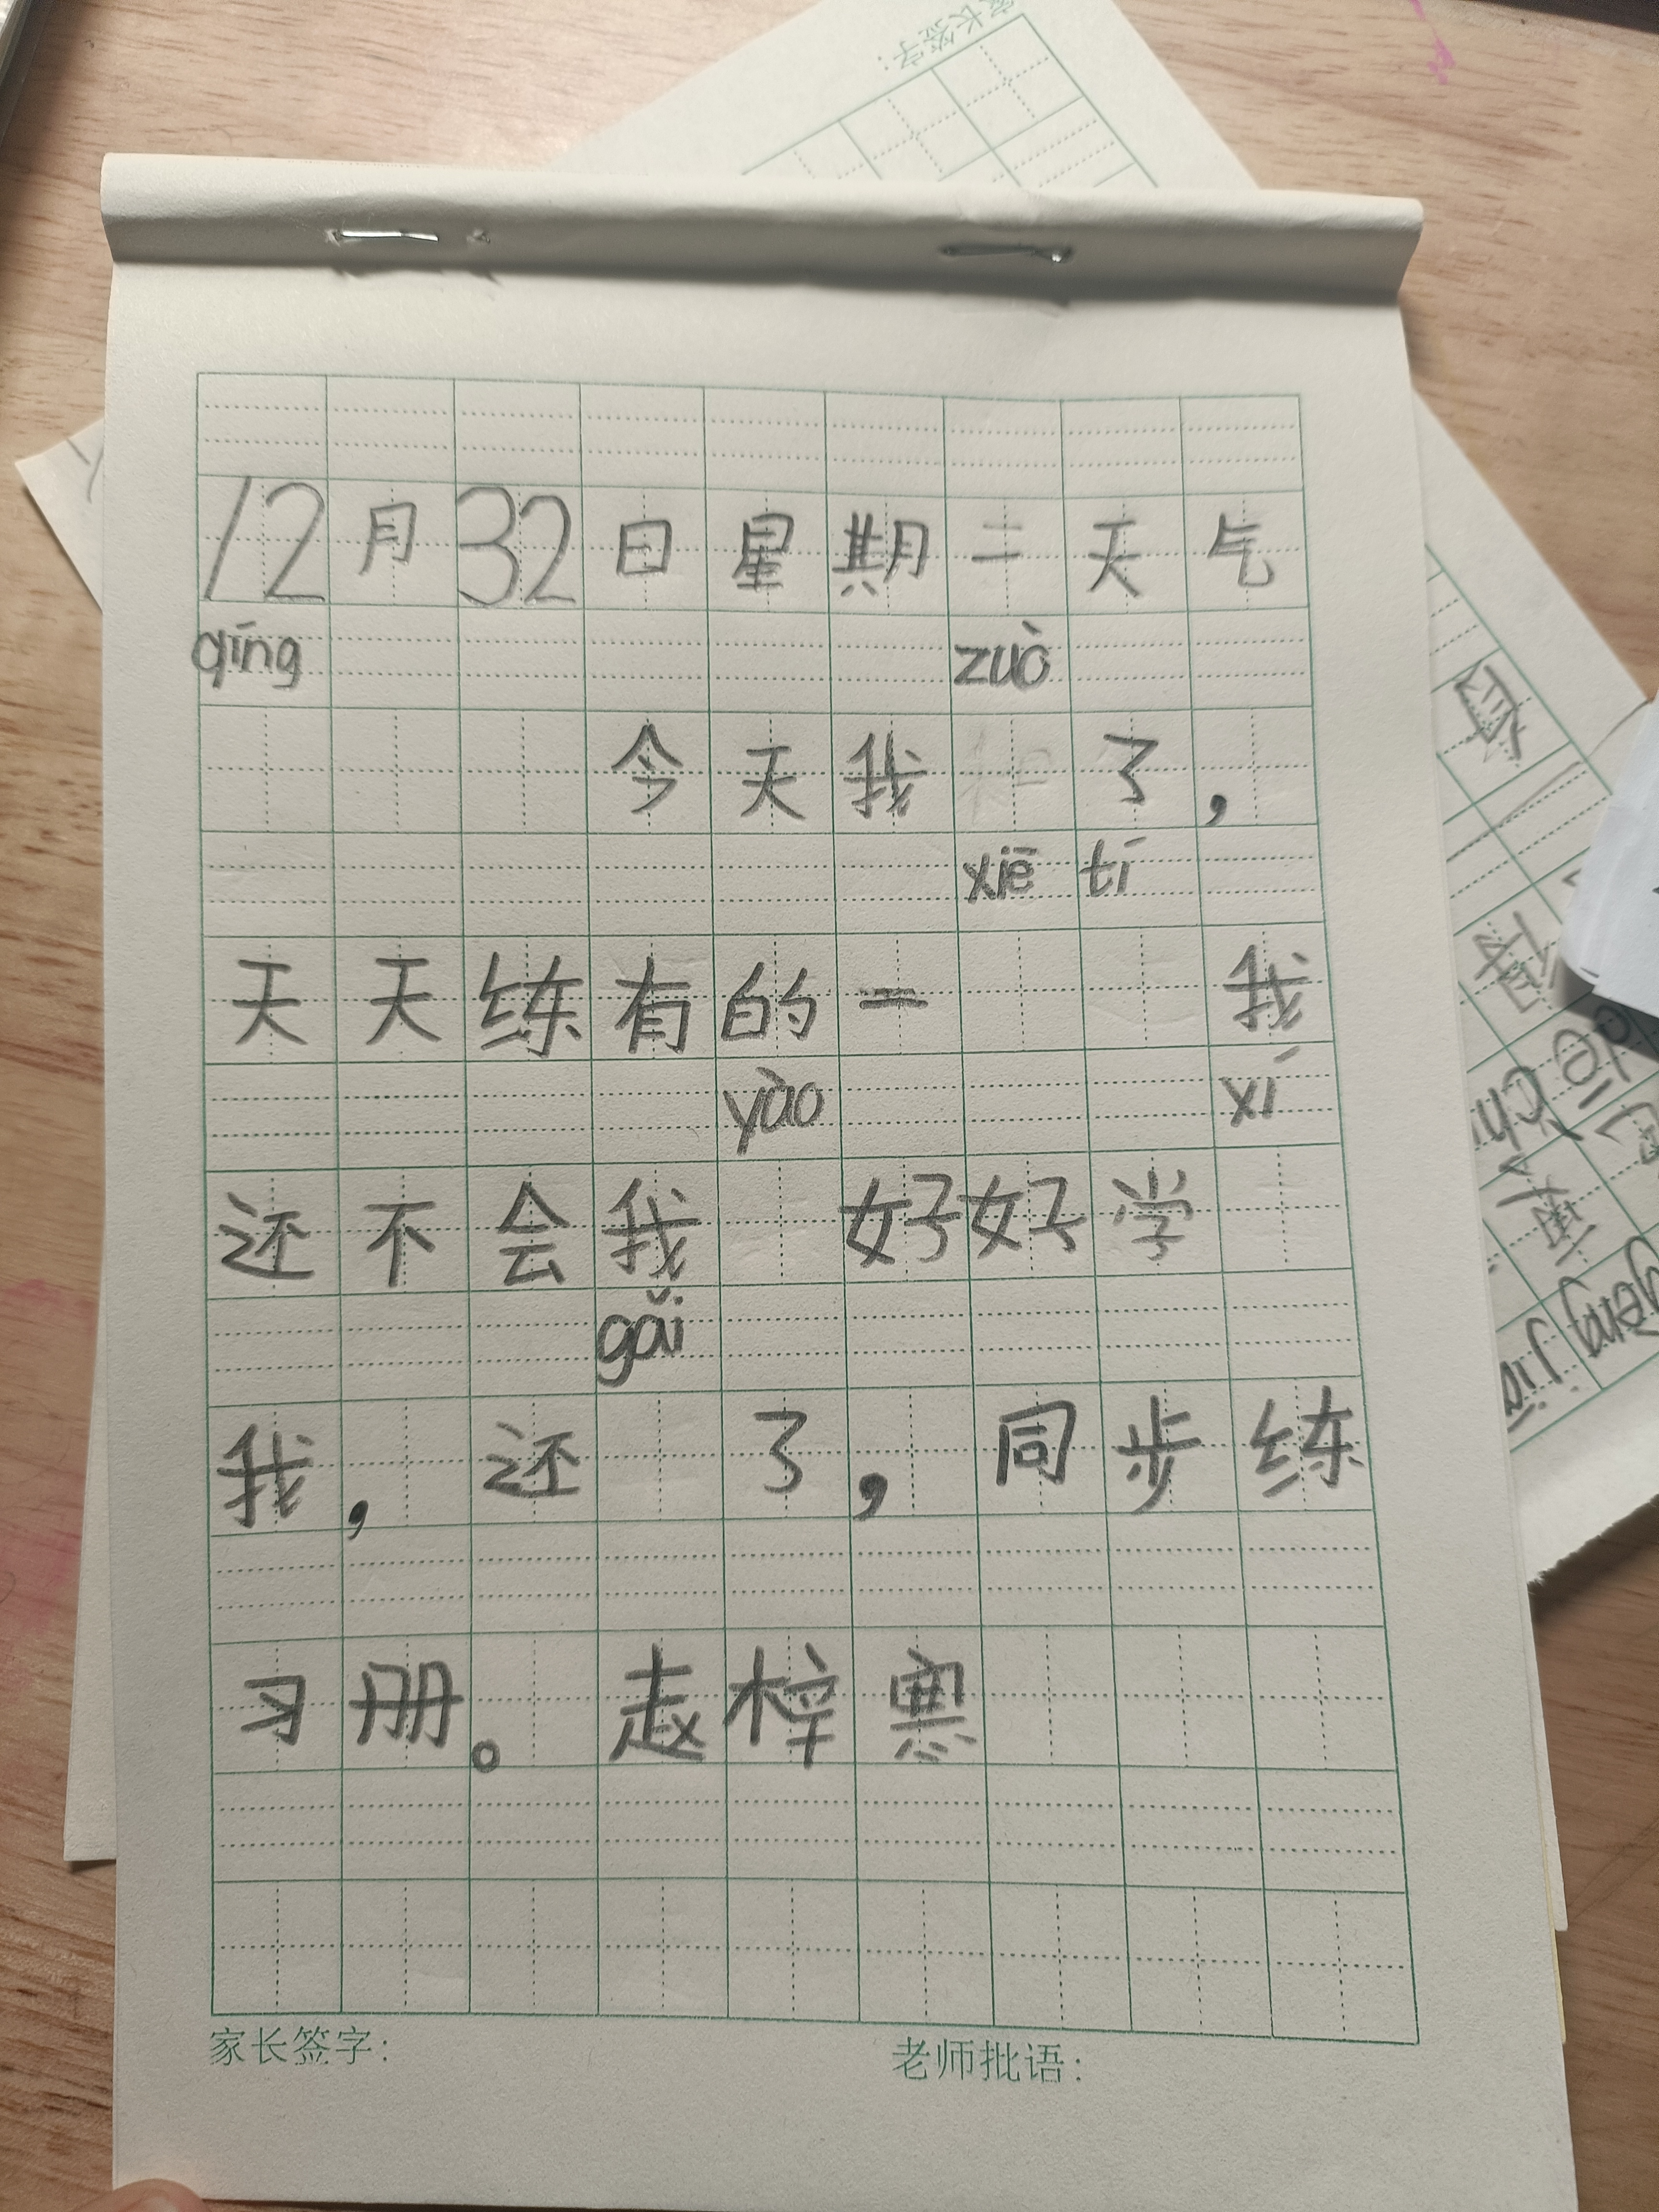 家长签字：
12月32日星期二天气
qīng zuò
今天我了，
xiē tí
天天练有的一我
yào xí
还不会我好好学
gǎi
我，还了，同步练
习册。赵梓寒
家长签字：
老师批语：